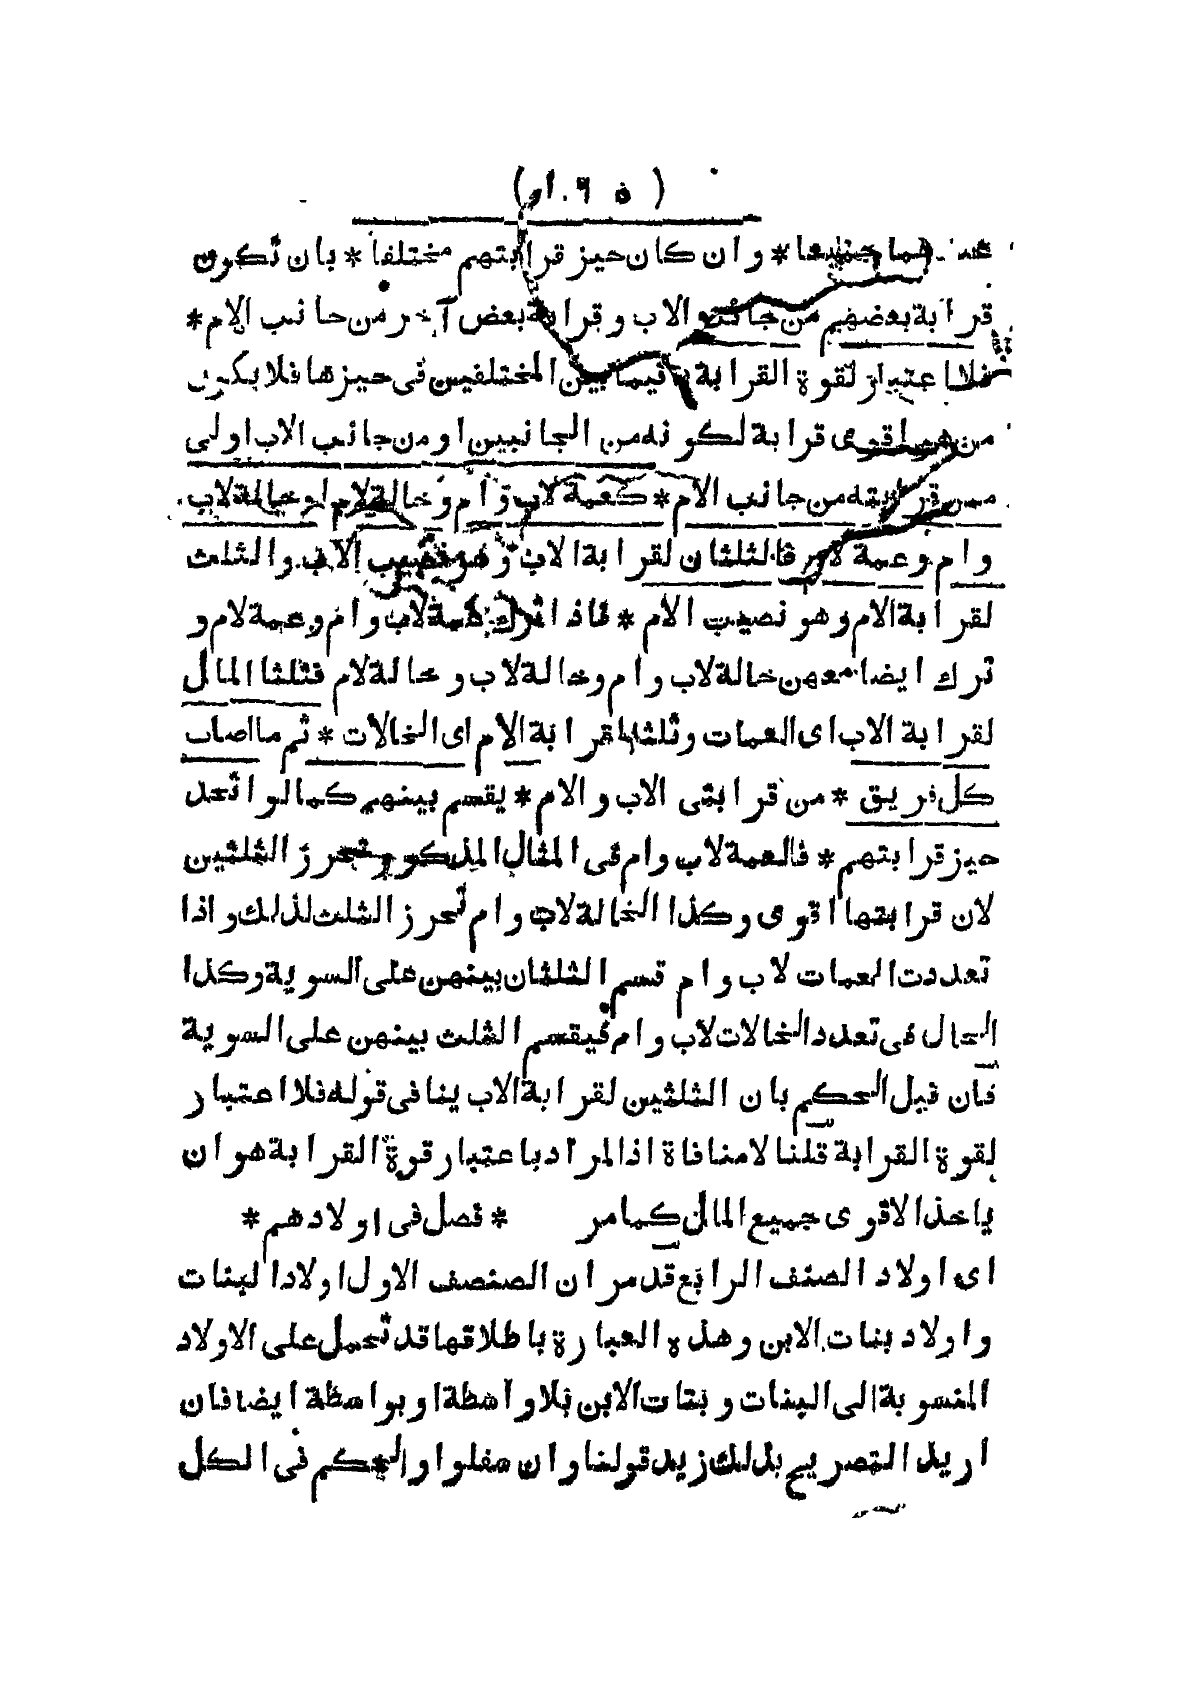 عندهما جميعا * وان كان حيز قرابتهم مختلفا * بان تكون
قرابة بعضهم من جانب الاب وقرابة بعض آخر من جانب الام *
فلا اعتبار لقوة القرابة فيما بين المختلفين فى حيزها فلا يكون
من هو اقوى قرابة لكونه من الجانبين او من جانب الاب اولى
ممن قرابته من جانب الام * كعمة لاب وام وخالة لام او خالة لاب
وام وعمة لام فالثلثان لقرابة الاب وهو نصيب الاب والثلث
لقرابة الام وهو نصيب الام * فاذا ترك عمة لاب وام وعمة لام و
ترك ايضا معهن خالة لاب وام وخالة لاب وخالة لام فثلثا المال
لقرابة الاب اى العمات وثلثها لقرابة الام اى الخالات * ثم ما اصاب
كل فريق * من قرابتى الاب والام * يقسم بينهم كما لو اتحد
حيز قرابتهم * فالعمة لاب وام فى المثال المذكور تحرز الثلثين
لان قرابتها اقوى وكذا الخالة لاب وام تحرز الثلث لذلك واذا
تعددت العمات لاب وام قسم الثلثان بينهن على السوية وكذا
الحال فى تعدد الخالات لاب وام فيقسم الثلث بينهن على السوية
فان قيل الحكم بان الثلثين لقرابة الاب ينافى قوله فلا اعتبار
لقوة القرابة قلنا لا منافاة اذ المراد باعتبار قوة القرابة هو ان
ياخذ الاقوى جميع المال كما مر * فصل فى اولادهم *
اى اولاد الصنف الرابع قد مر ان الصنصف الاول اولاد البنات
واولاد بنات الابن وهذه العبارة باطلاقها قد تحمل على الاولاد
المنسوبة الى البنات وبنات الابن بلا واسطة او بواسطة ايضا فان
اريد التصريح بذلك زيد قولنا وان سفلوا والحكم فى الكل